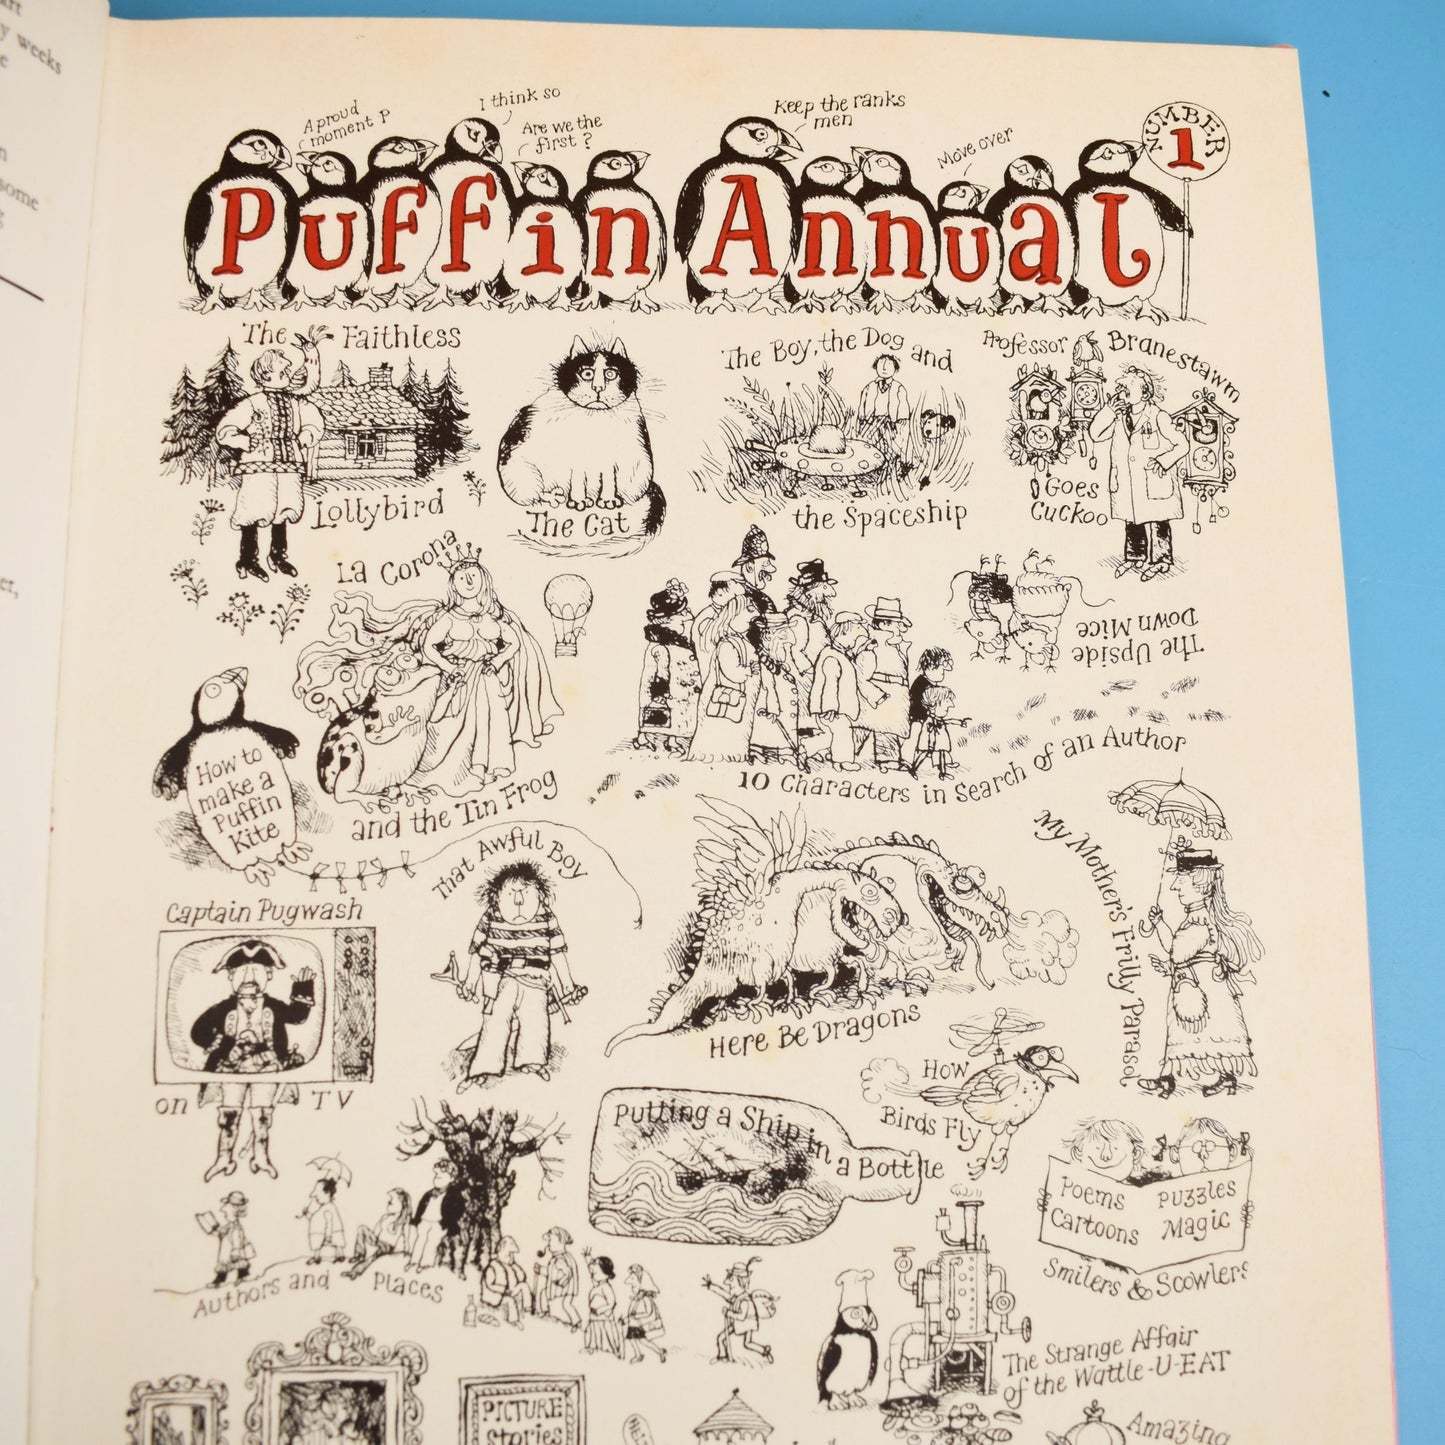 art
y weeks
some
er,
A proud
moment P
I think so
Are we the
first?
Keep the ranks
men
Move over
NUMBER
1
Puffin Annual
The Faithless
Lollybird
The Cat
The Boy, the Dog and
the Spaceship
Professor Branestawm
Goes
Cuckoo
La Corona
and the Tin Frog
The Upside
Down Mice
10 Characters in Search of an Author
How to
make a
Puffin
Kite
That Awful Boy
My Mother's Frilly Parasol
Captain Pugwash
on TV
Here Be Dragons
How
Birds Fly
Putting a Ship in a Bottle
Poems Puzzles
Cartoons Magic
Smilers & Scowlers
Authors and Places
The Strange Affair
of the Wattle-U-EAT
PICTURE
Stories
Amazing